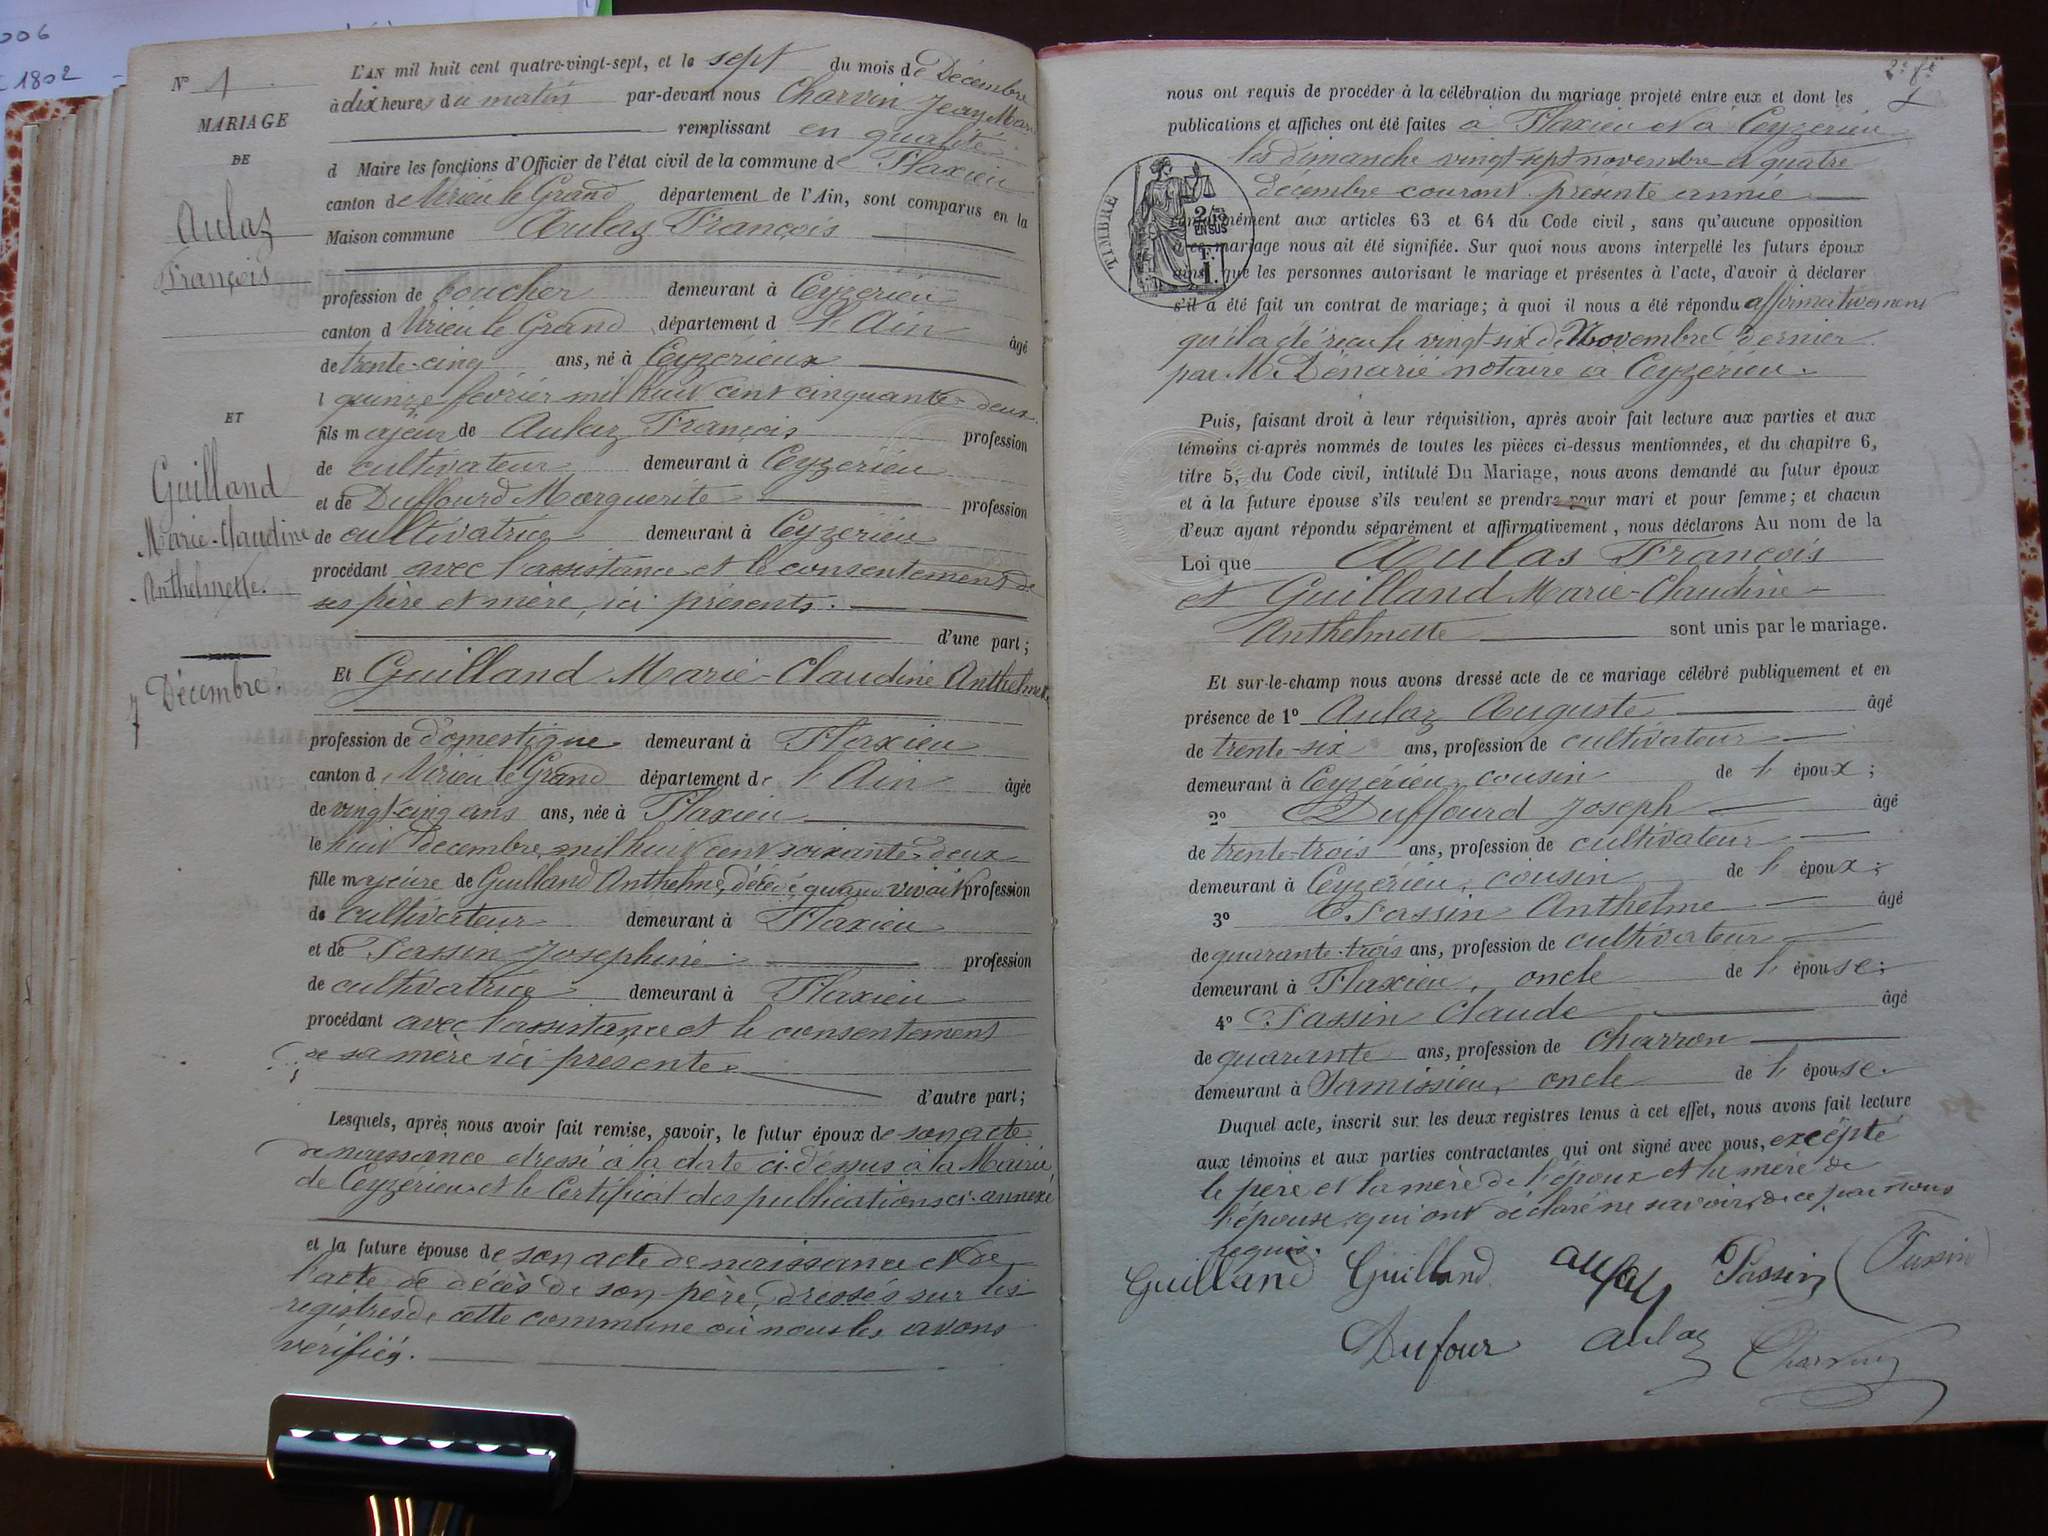 006
1802
N° 1
MARIAGE
DE
Aulaz
François
ET
Guilland
Marie-Claudine
Anthelmette.
7 Décembre.
L'AN mil huit cent quatre-vingt-sept, et le sept du mois de Décembre
à dix heures du matin par-devant nous Charvin Jean Marie
remplissant en qualité
d Maire les fonctions d'Officier de l'état civil de la commune de Flaxieu
canton de Virieu le Grand département de l'Ain, sont comparus en la
Maison commune Aulaz François
profession de boucher demeurant à Ceyzerieu
canton d Virieu le Grand département d l'Ain âgé
de trente-cinq ans, né à Ceyzerieux
l quinze février mil huit cent cinquante-deux
fils majeur de Aulaz François profession
de cultivateur demeurant à Ceyzerieu
et de Duffourd Marguerite profession
de cultivatrice demeurant à Ceyzerieu
procédant avec l'assistance et le consentement de
ses père et mère, ici présents.
d'une part;
Et Guilland Marie-Claudine Anthelmette
profession de domestique demeurant à Flaxieu
canton de Virieu le Grand département de l'Ain âgée
de vingt-cinq ans ans, née à Flaxieu
le huit decembre mil huit cent soixante-deux
fille majeure de Guilland Anthelme, décédé, quand vivait profession
de cultivateur demeurant à Flaxieu
et de Passin Josephine profession
de cultivatrice demeurant à Flaxieu
procédant avec l'assistance et le consentement
de sa mère ici présente.
d'autre part;
Lesquels, après nous avoir fait remise, savoir, le futur époux de son acte
de naissance dressé à la date ci-dessus à la Mairie
de Ceyzérieu et le Certificat des publications ci-annexé
et la future épouse de son acte de naissance et de
l'acte de décès de son père, dressés sur les
registres de cette commune où nous les avons
vérifiés.
2e ft
nous ont requis de procéder à la célébration du mariage projeté entre eux et dont les
publications et affiches ont été faites à Flaxieu et à Ceyzérieu
les dimanche vingt-sept novembre et quatre
décembre courant présente année
TIMBRE
2/10 EN SUS
F. 1.
conformément aux articles 63 et 64 du Code civil, sans qu'aucune opposition
à ce mariage nous ait été signifiée. Sur quoi nous avons interpellé les futurs époux
ainsi que les personnes autorisant le mariage et présentes à l'acte, d'avoir à déclarer
s'il a été fait un contrat de mariage; à quoi il nous a été répondu affirmativement
qu'il a été réçu le vingt-six de Novembre dernier
par M. Dénarié notaire à Ceyzérieu.
Puis, faisant droit à leur réquisition, après avoir fait lecture aux parties et aux
témoins ci-après nommés de toutes les pièces ci-dessus mentionnées, et du chapitre 6,
titre 5, du Code civil, intitulé Du Mariage, nous avons demandé au futur époux
et à la future épouse s'ils veulent se prendre pour mari et pour femme; et chacun
d'eux ayant répondu séparément et affirmativement, nous déclarons Au nom de la
Loi que Aulas François
et Guilland Marie-Claudine-
Anthelmette sont unis par le mariage.
Et sur-le-champ nous avons dressé acte de ce mariage célébré publiquement et en
présence de 1° Aulaz Auguste âgé
de trente-six ans, profession de cultivateur
demeurant à Ceyzérieu, cousin de l'époux;
2° Duffourd Joseph âgé
de trente-trois ans, profession de cultivateur
demeurant à Ceyzérieu, cousin de l'époux;
3° Passin Anthelme âgé
de quarante-trois ans, profession de cultivateur
demeurant à Flaxieu, oncle de l'épouse;
4° Passin Claude âgé
de quarante ans, profession de charron
demeurant à Parnissieu, oncle de l'épouse.
Duquel acte, inscrit sur les deux registres tenus à cet effet, nous avons fait lecture
aux témoins et aux parties contractantes qui ont signé avec nous, excépté
le père et la mère de l'époux et la mère de
l'épouse qui ont déclaré ne savoir, de ce par nous
requis.
Guilland Guilland Aulaz Passin Passin
Dufour aulaz Charvin